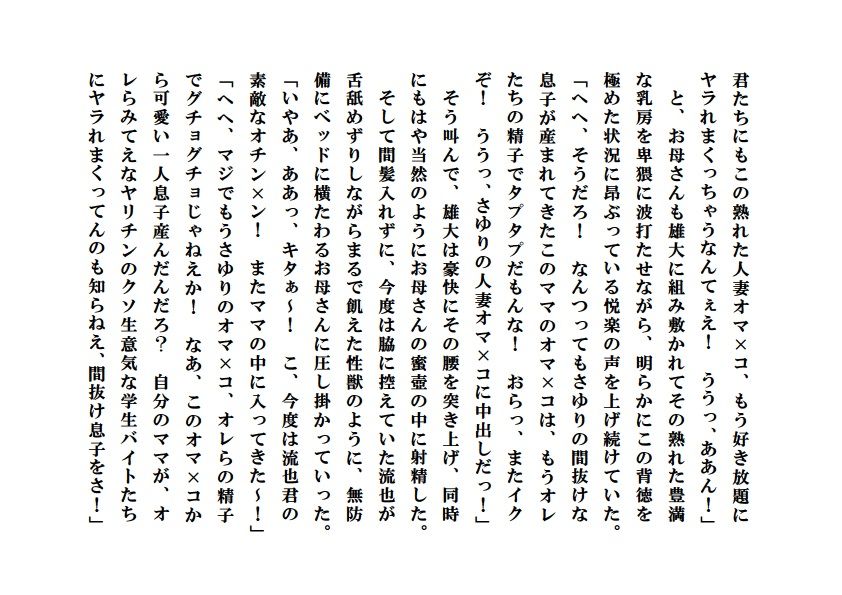 君たちにもこの熟れた人妻オマ×コ、もう好き放題に
ヤラれまくっちゃうなんてぇえ！　ううっ、ああん！」
　と、お母さんも雄大に組み敷かれてその熟れた豊満
な乳房を卑猥に波打たせながら、明らかにこの背徳を
極めた状況に昂ぶっている悦楽の声を上げ続けていた。
「へへ、そうだろ！　なんつってもさゆりの間抜けな
息子が産まれてきたこのママのオマ×コは、もうオレ
たちの精子でタプタプだもんな！　おらっ、またイク
ぞ！　ううっ、さゆりの人妻オマ×コに中出しだっ！」
　そう叫んで、雄大は豪快にその腰を突き上げ、同時
にもはや当然のようにお母さんの蜜壺の中に射精した。
　そして間髪入れずに、今度は脇に控えていた流也が
舌舐めずりしながらまるで飢えた性獣のように、無防
備にベッドに横たわるお母さんに圧し掛かっていった。
「いやあ、ああっ、キタぁ～！　こ、今度は流也君の
素敵なオチン×ン！　またママの中に入ってきた～！」
「へへ、マジでもうさゆりのオマ×コ、オレらの精子
でグチョグチョじゃねえか！　なあ、このオマ×コか
ら可愛い一人息子産んだんだろ？　自分のママが、オ
レらみてえなヤリチンのクソ生意気な学生バイトたち
にヤラれまくってんのも知らねえ、間抜け息子をさ！」